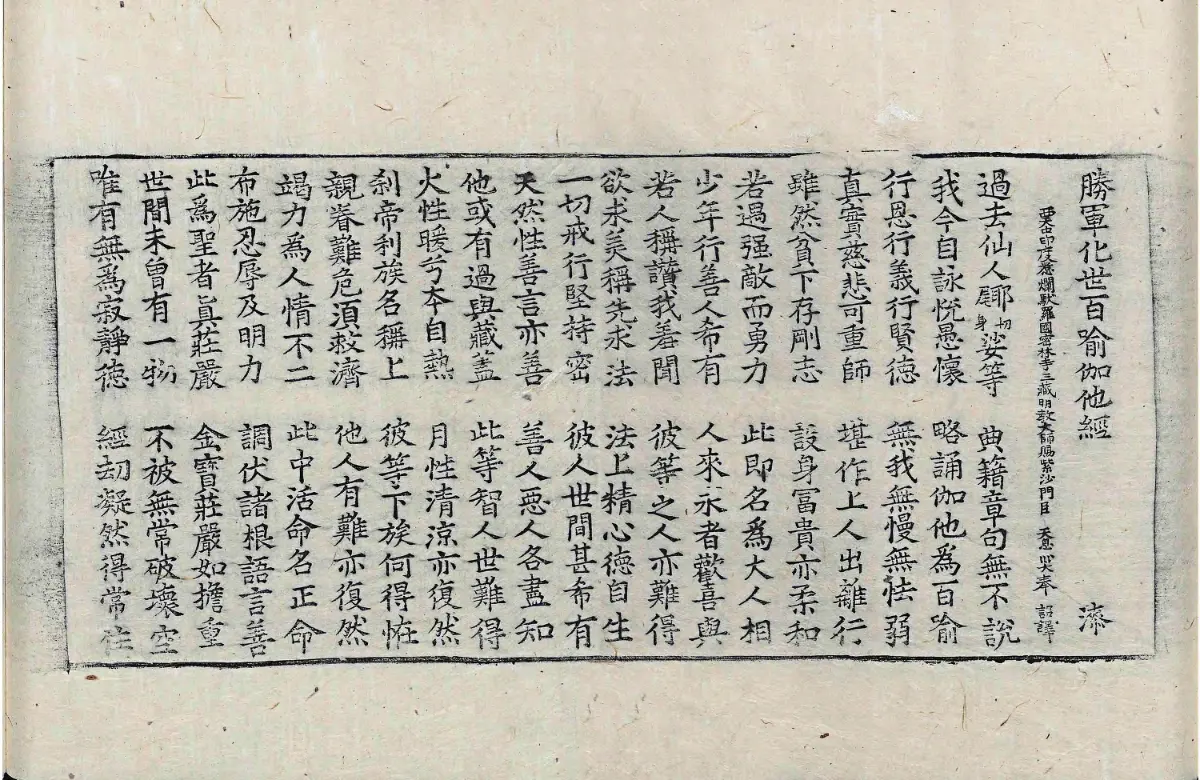 勝軍化世百喻伽他經 漆
西天中印度惹爛馱羅國密林寺三藏明教大師賜紫沙門臣 天息災奉 詔譯
過去仙人耶切身娑等 典籍章句無不說
我今自詠悅愚懷 略誦伽他為百喻
行恩行義行賢德 無我無慢無怯弱
真實慈悲可重師 堪作上人出離行
雖然貧下存剛志 設身冨貴亦柔和
若遇强敵而勇力 此即名爲大人相
少年行善人希有 人來求者歡喜與
若人稱讚我羞聞 彼等之人亦難得
欲求美稱先求法 法上精心德自生
一切戒行堅持密 彼人世間甚希有
天然性善言亦善 善人惡人各盡知
他或有過與藏蓋 此等智人世難得
火性暖兮本自熱 月性清涼亦復然
剎帝利族名稱上 彼等下族何得恠
親眷難危須救濟 他人有難亦復然
竭力為人情不二 此中活命名正命
布施忍辱及明力 調伏諸根語言善
此爲聖者真莊嚴 金寶莊嚴如擔重
世間未曾有一物 不被無常破壞空
唯有無為寂靜德 經劫凝然得常住